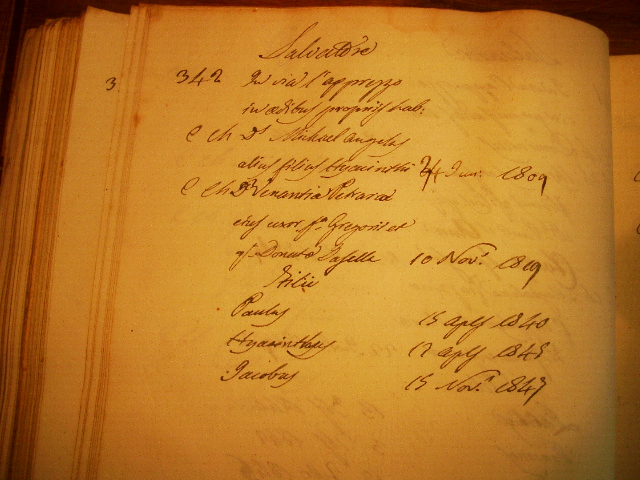 Salvatore
3 342 In via l'apprezzo
in ædibus propriis hab:
C Ch Ds Michael Angelus
alius filius Hyacinthi 24 Jun: 1809
C Ch D Venantia Petraræ
eius uxor fa Gregorii et
qs Donatæ 10 Novs 1819
Filii
Paulus 15 aplis 1840
Hyacinthus 17 aplis 1845
Jacobus 15 Nov.s 1847